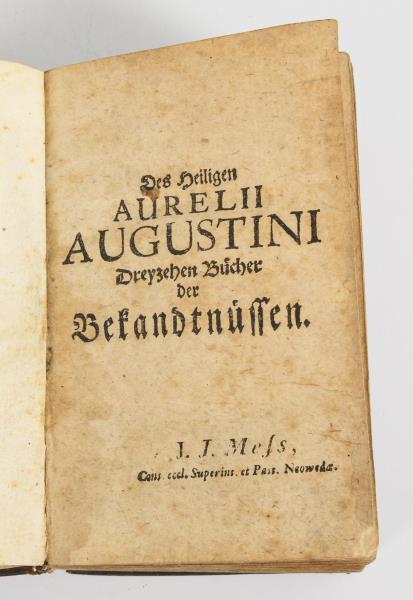 Des Heiligen
AURELII
AUGUSTINI
Dreyzehen Bücher
der
Bekandtnüssen.
J. J. Meſs,
Cons. eccl. Superint. et Past. Neowedæ.